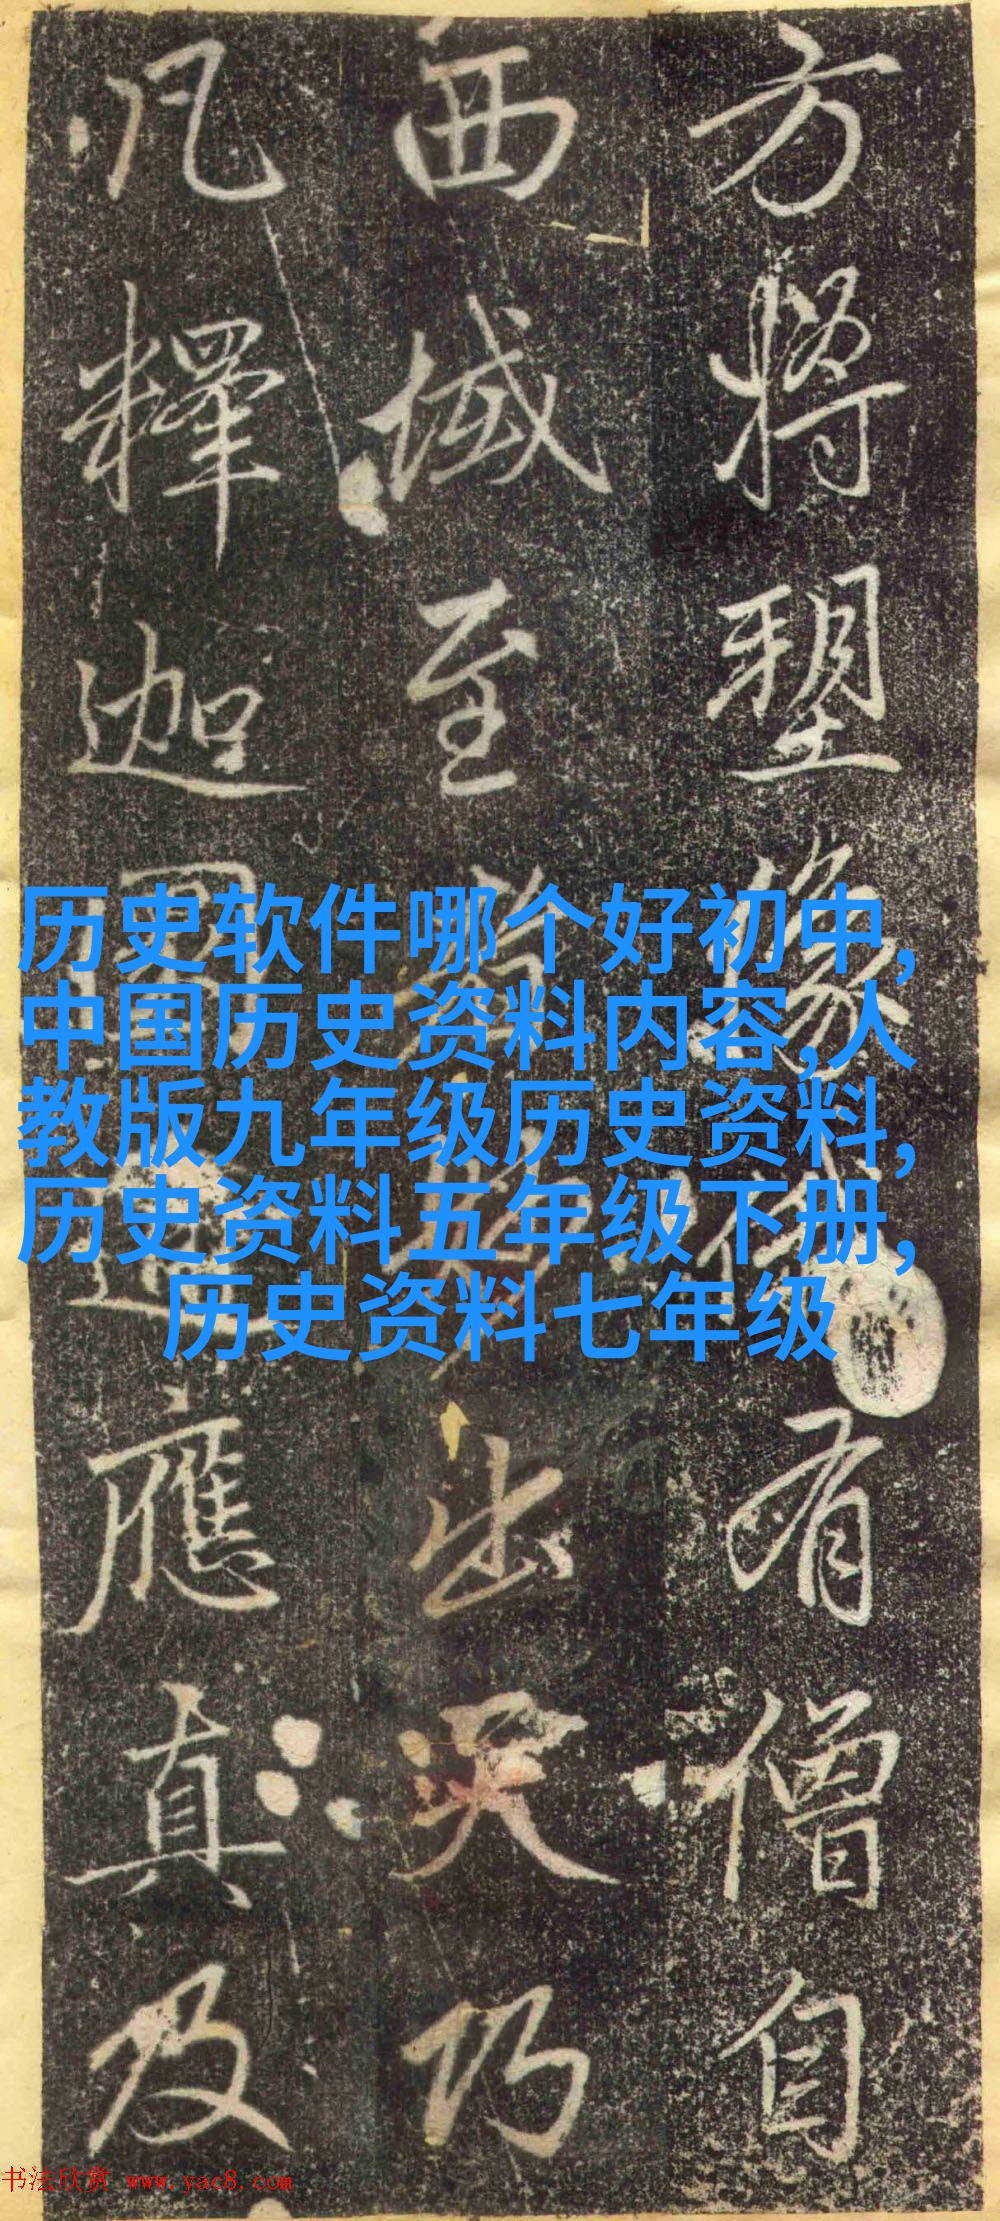 方將塑像有僧自
西域至出天
凡釋迦應真及
历史软件哪个好初中,
中国历史资料内容,人
教版九年级历史资料,
历史资料五年级下册,
历史资料七年级
书法欣赏 www.yac8.com